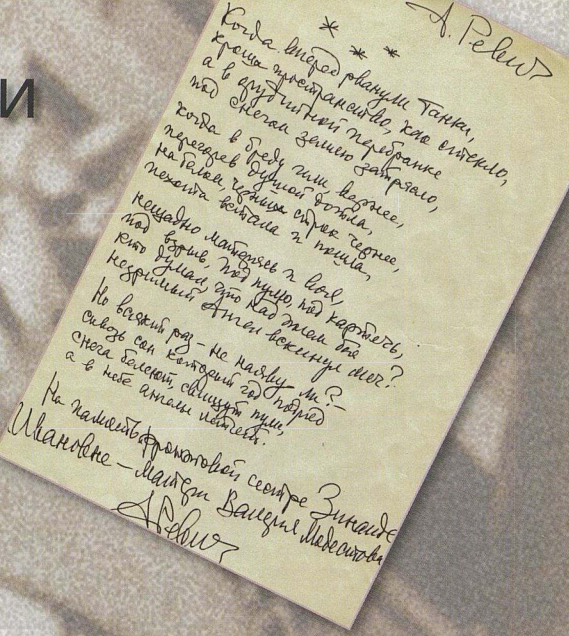 и
А. Ревич
* * *
Когда вперед рванули танки,
кроша пространство, как стекло,
а в орудийной перебранке
под снегом землю затрясло,
когда в бреду или вернее,
перегорев душой дотла,
на белом, черных строк чернее,
пехота встала и пошла,
нещадно матерясь и воя,
под взрыв, под пулю, под картечь,
кто думал, что над полем боя
незримый Ангел вскинул меч?
Но всякий раз – не наяву ли? –
сквозь сон который год подряд
снега белеют, свищут пули,
а в небе ангелы летят.
На память фронтовой сестре Зинаиде
Ивановне – матери Валерия Модестова
А Ревич